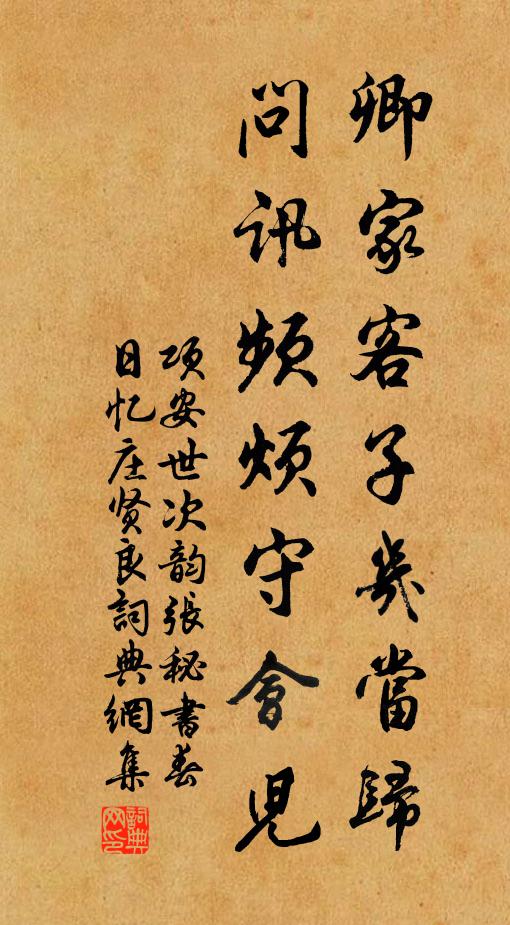 卿家客子幾當歸
問訊頻煩守會兒
项安世次韵張秘書春
日忆庄贤良詞典網集
詞典网印